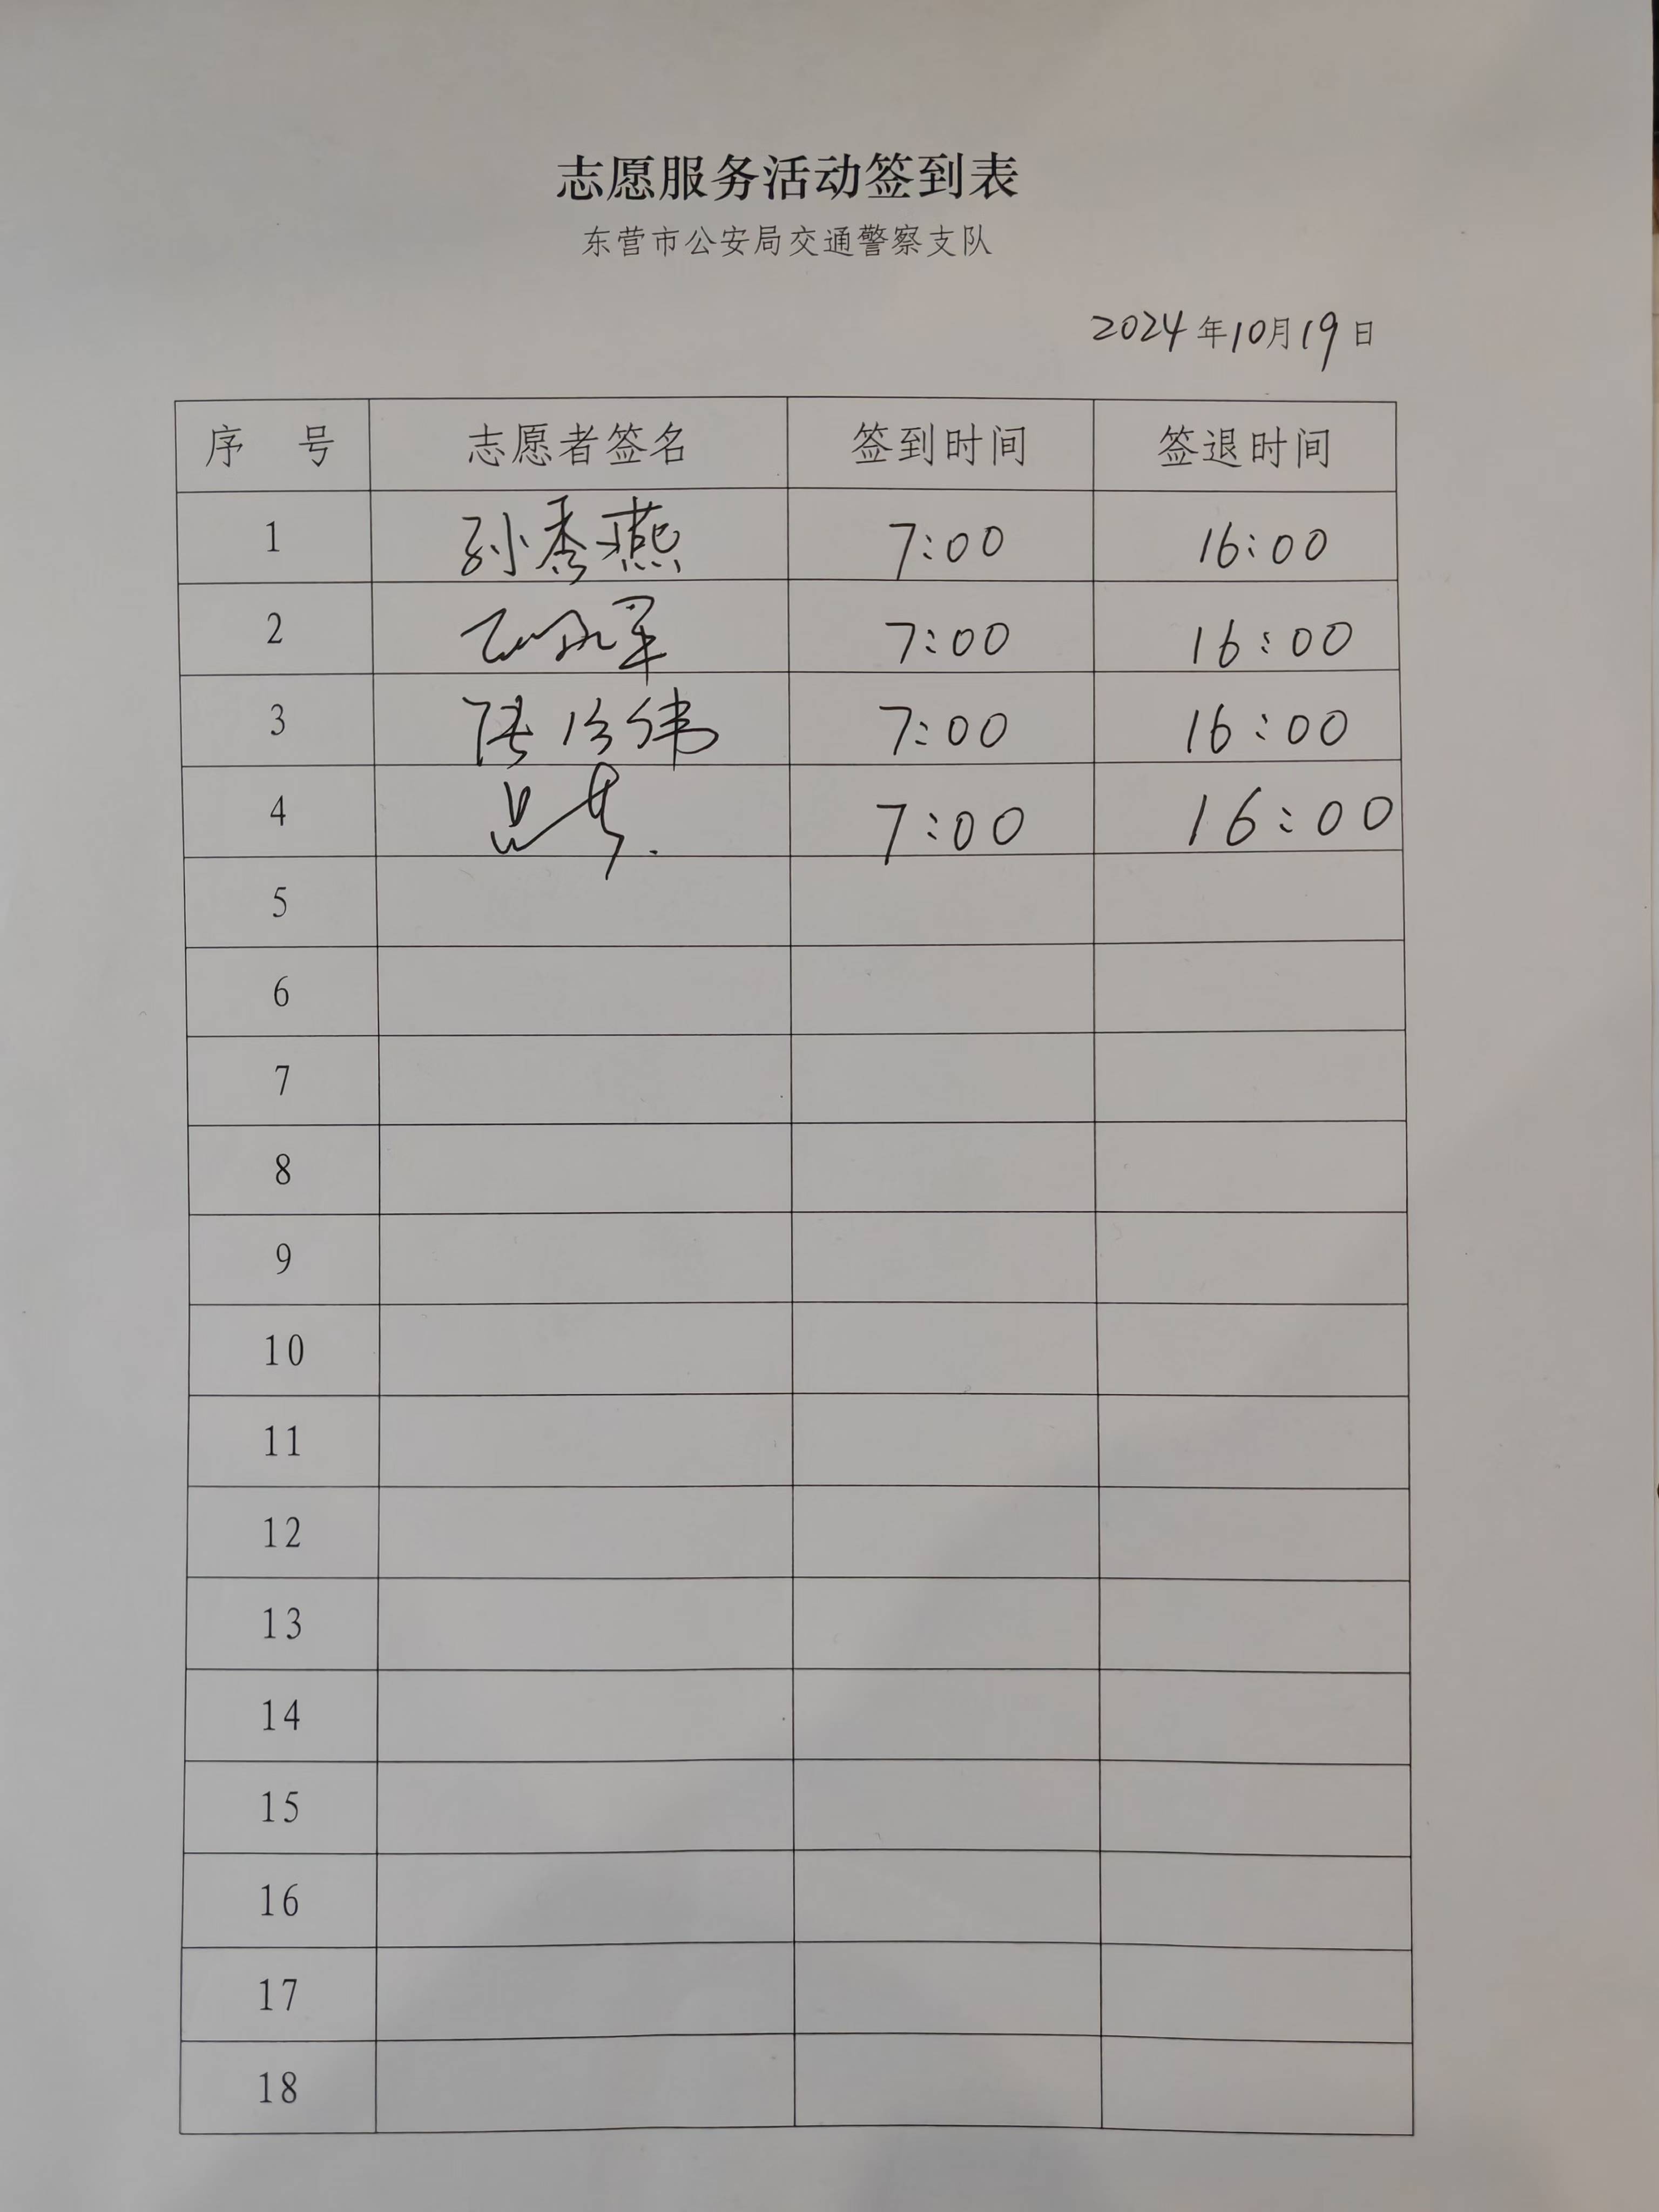 志愿服务活动签到表
东营市公安局交通警察支队
2024年10月19日
序 号 志愿者签名 签到时间 签退时间
1 孙秀燕 7:00 16:00
2 7:00 16:00
3 7:00 16:00
4 7:00 16:00
5
6
7
8
9
10
11
12
13
14
15
16
17
18